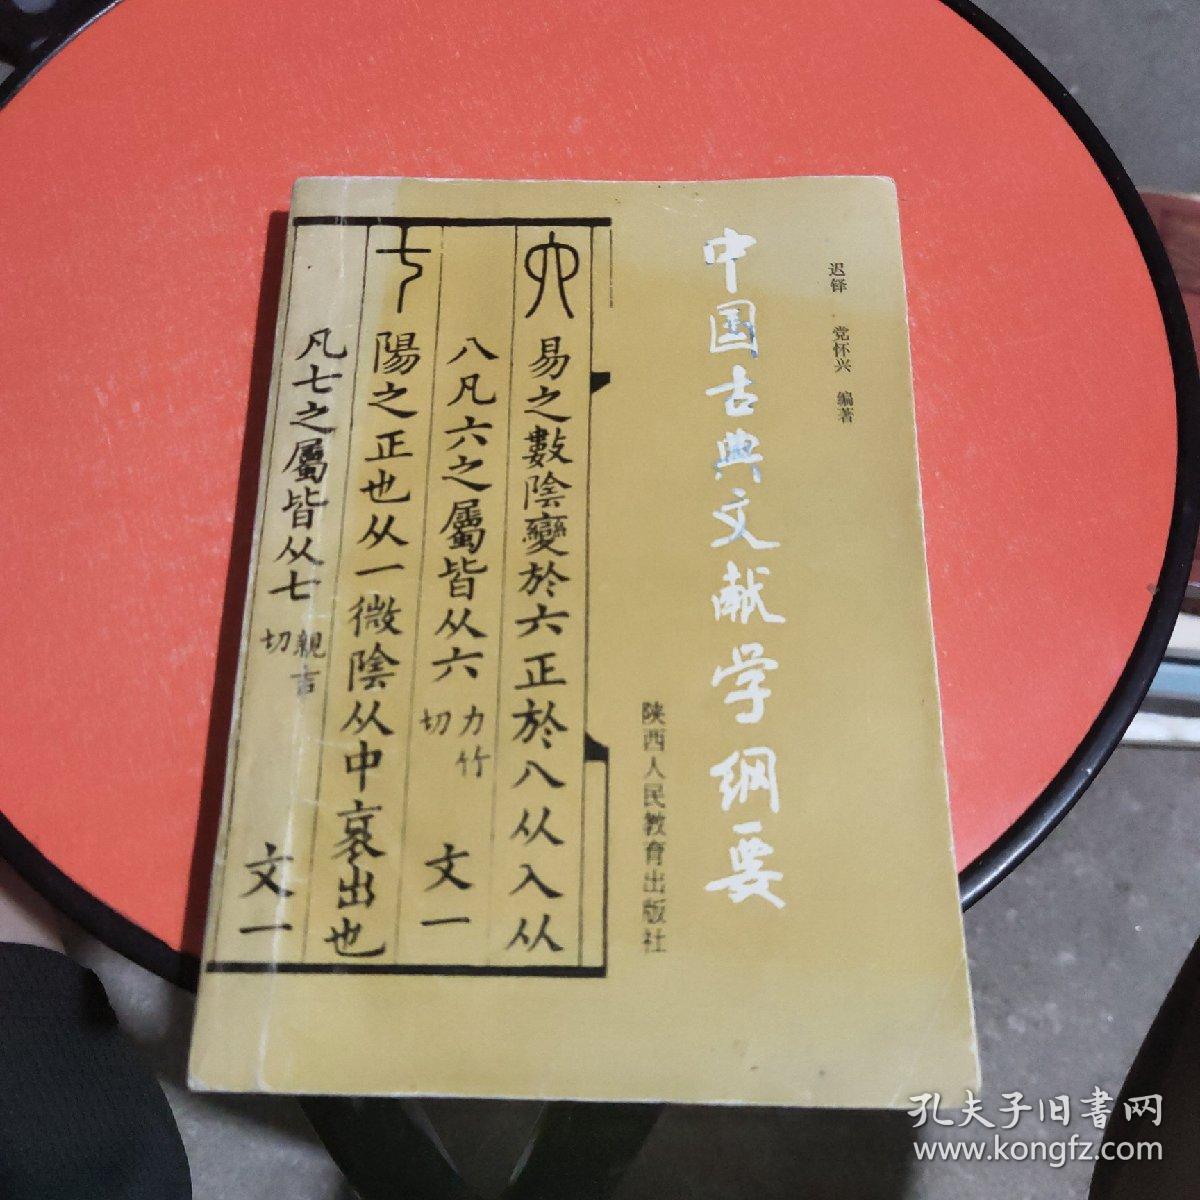 迟铎 党怀兴 编著
中国古典文献学纲要
陕西人民教育出版社
易之數陰變於六正於八从入从
八凡六之屬皆从六 力竹切 文一
陽之正也从一微陰从中衺出也
凡七之屬皆从七 親吉切 文一
孔夫子旧書网
www.kongfz.com